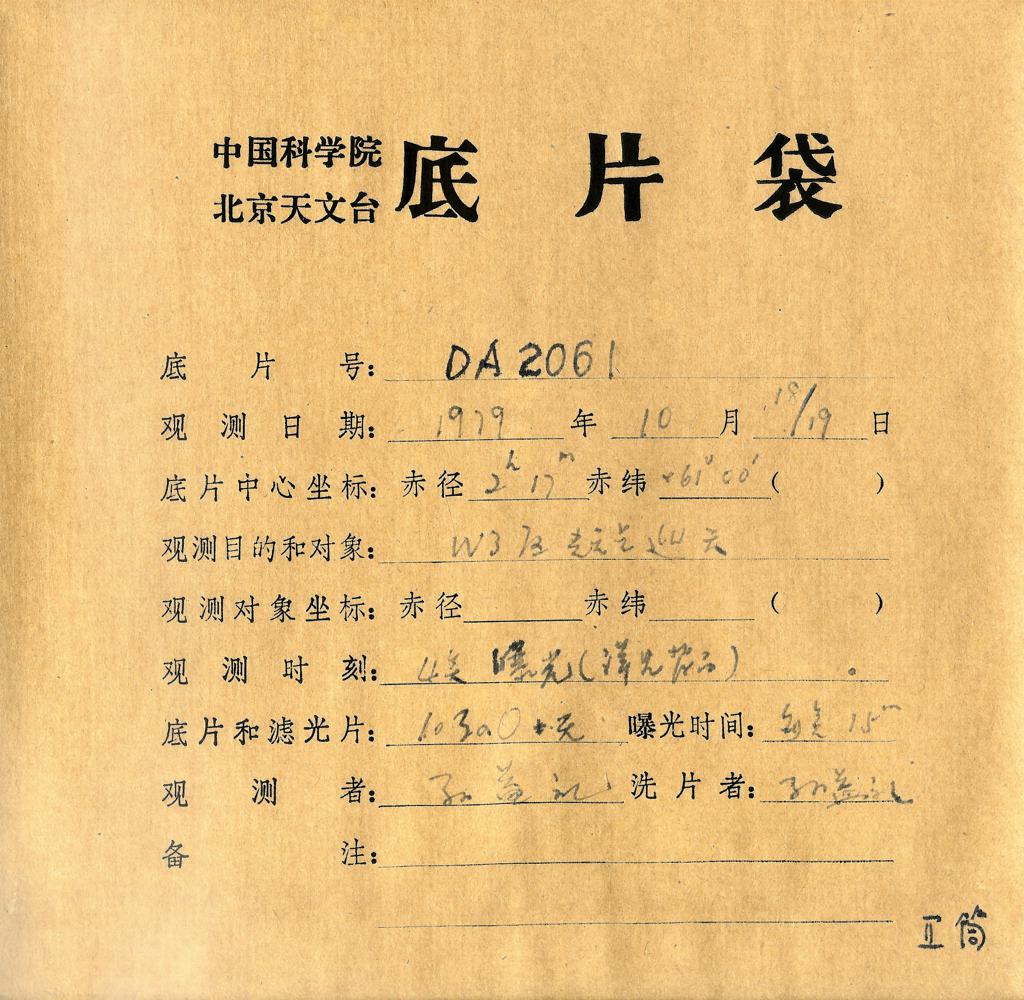 中国科学院
北京天文台
底片袋
底片号: DA2061
观测日期: 1979年10月18/19日
底片中心坐标: 赤径 2h17m 赤纬 +61°00′ ( )
观测目的和对象: W3区 巡天
观测对象坐标: 赤径 赤纬 ( )
观测时刻: 4次 曝光(
底片和滤光片: 103aO+无 曝光时间: 每次 15m
观测者: 孙益礼 洗片者: 孙益礼
备注:
正筒